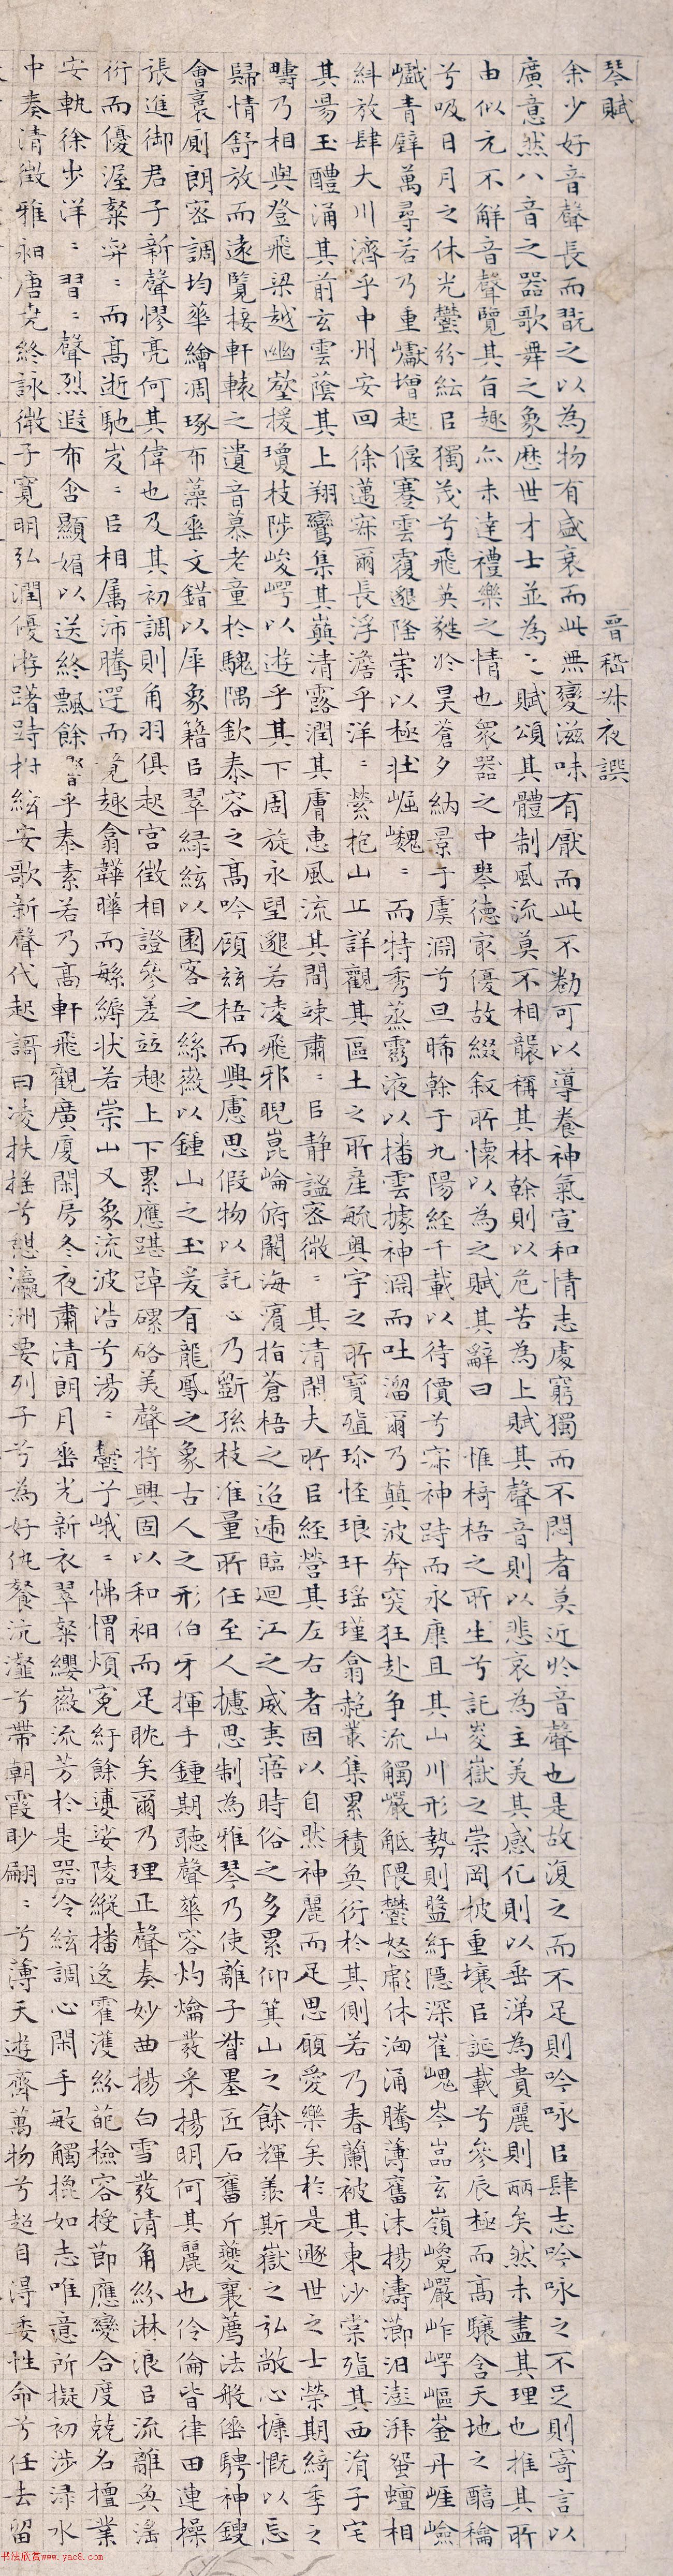 琴賦 晉嵇叔夜譔
余少好音聲長而翫之以為物有盛衰而此無變滋味有厭而此不勌可以導養神氣宣和情志處窮獨而不悶者莫近於音聲也是故復之而不足則吟詠㠯肆志吟咏之不足則寄言以
廣意然八音之器歌舞之象歷世才士並為之賦頌其體制風流莫不相襲稱其林幹則以危苦為上賦其聲音則以悲哀為主美其感化則以垂涕為貴麗則丽矣然未盡其理也推其所
由似元不解音聲覽其旨趣亦未達禮樂之情也眾器之中琴德最優故綴叙所懷以為之賦其辭曰 惟椅梧之所生兮託峻嶽之崇岡披重壤㠯誕載兮參辰極而高驤含天地之醇龢
兮吸日月之休光鬱紛紜㠯獨茂兮飛英蕤於昊蒼夕納景于虞淵兮旦晞幹于九陽経千載以待價兮寂神跱而永康且其山川形勢則盤紆隱深崔嵬岑嵓玄嶺巉巖岞崿嶇崟丹崖嶮
巇青壁萬尋若乃重巘增起偃蹇雲覆邈隆崇以極壯崛巍〻而特秀蒸靈液以播雲據神淵而吐溜爾乃顛波奔突狂赴争流觸巖觝隈鬱怒彪休洶涌騰薄奮沫揚濤瀄汩澎湃蜿蟺相
糾放肆大川濟乎中州安回徐邁寂爾長浮澹乎洋〻縈抱山丘詳觀其區土之所產毓奥宇之所寶殖珍怪琅玕瑶瑾翕赩叢集累積奐衍於其側若乃春蘭被其東沙棠殖其西涓子宅
其昜玉醴涌其前玄雲蔭其上翔鸞集其巔清露潤其膚惠風流其間竦肅〻㠯静謐密微〻其清閑夫所㠯経營其左右者固以自然神麗而足思願愛樂矣於是遯世之士榮期綺季之
疇乃相與登飛梁越幽壑援瓊枝陟峻崿以遊乎其下周旋永望邈若凌飛邪睨崑崙俯闞海濱指蒼梧之迢逓臨迴江之威夷寤時俗之多累仰箕山之餘輝羨斯嶽之弘敞心慷慨以忘
歸情舒放而遠覽接軒轅之遺音慕老童於騩隅欽泰容之高吟顧茲梧而興慮思假物以託心乃斲孫枝准量所任至人攄思制為雅琴乃使離子督墨匠石奮斤夔襄薦法般倕騁神鎪
會裛厠朗密調均華繪凋琢布藻垂文錯以犀象籍㠯翠綠絃以園客之絲徽以鍾山之玉爰有龍鳳之象古人之形伯牙揮手鍾期聽聲華容灼爚發采揚明何其麗也伶倫皆律田連操
張進御君子新聲憀亮何其偉也及其初調則角羽俱起宮徵相證參差竝趣上下累應踸踔磥硌美聲將興固以和昶而足眈矣爾乃理正聲奏妙曲揚白雪發清角紛淋浪㠯流離奐滛
衍而優渥粲奕〻而高逝馳岌〻㠯相属沛騰遌而競趣翕韡曄而緐縟状若崇山又象流波浩兮湯〻鬱兮峨〻怫㥜煩寃紆餘婆娑陵縱播逸霍濩紛葩檢容授節應變合度兢名擅業
安軌徐步洋〻習〻聲烈遐布含顯媚以送終飄餘響乎泰素若乃高軒飛觀廣廈閑房冬夜肅清朗月垂光新衣翠粲纓徽流芳於是器冷絃調心閑手敏觸㩻如志唯意所擬初涉淥水
中奏清徵雅昶唐堯終詠微子寬明弘潤優游躇跱拊絃安歌新聲代起謌曰凌扶摇兮憇瀛洲要列子兮為好仇餐沆瀣兮帶朝霞眇翩〻兮薄天遊齊萬物兮超自淂委性命兮任去留
书法欣赏www.yac8.com